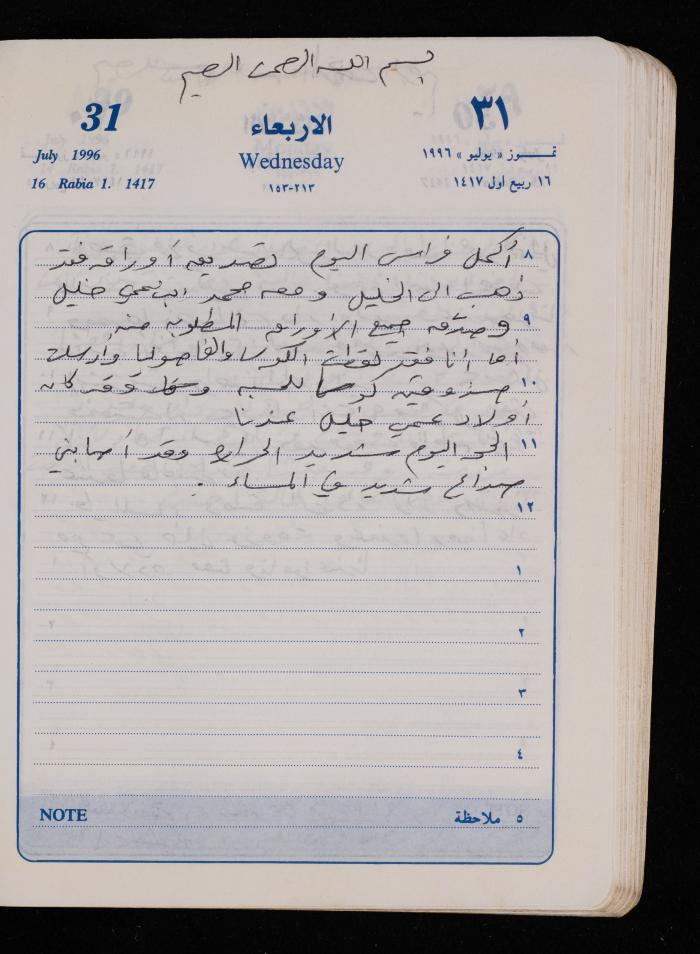 بسم الله الرحمن الرحيم
31
الاربعاء
٣١
July 1996
Wednesday
تمـــوز « يوليو » ١٩٩٦
16 Rabia 1. 1417
٢١٣-١٥٣
١٦ ربيع اول ١٤١٧
٨ أكمل فراس اليوم تصديق أوراقه فقد
ذهب الى الخليل ومعه محمد ابن عمي خليل
٩ وصدّقه جميع الأوراق المطلوبه منه
أما أنا فقد لقطت الكوسا والفاصوليا وأرسلت
١٠ صندوقين كوسا للحسبه وقد كان
أولاد عمي خليل عندنا
١١ الجو اليوم شديد الحراره وقد أصابني
صداع شديد في المساء .
١٢
١
٢
٣
٤
NOTE
٥ ملاحظة